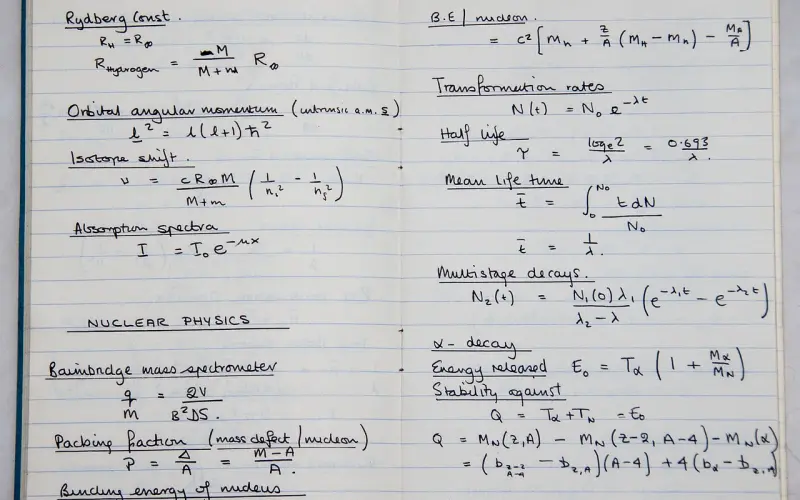 Rydberg Const.
R_H = R_∞
R_Hydrogen = M / (M + m) R_∞
Orbital angular momentum (intrinsic a.m. s)
l² = l(l+1)ħ²
Isotope shift.
ν = (c R_∞ M) / (M+m) (1/n_i² - 1/n_f²)
Absorption spectra
I = I₀ e^(-μx)
NUCLEAR PHYSICS
Bainbridge mass spectrometer
q/m = 2V / (B²DS).
Packing fraction (mass defect/nucleon)
P = Δ/A = (M-A)/A.
Binding energy of nucleus
B.E / nucleon.
= c² [m_n + Z/A (m_H - m_n) - M_A/A]
Transformation rates
N(t) = N₀ e^(-λt)
Half life
τ = log_e 2 / λ = 0.693 / λ.
Mean life time
t̄ = ∫₀^N₀ t dN / N₀
t̄ = 1/λ.
Multistage decays.
N₂(t) = N₁(0) λ₁ / (λ₂ - λ) (e^(-λ₁t) - e^(-λ₂t))
α - decay
Energy released E₀ = T_α (1 + M_α/M_N)
Stability against
Q = T_α + T_N = E₀
Q = M_N(Z,A) - M_N(Z-2, A-4) - M_N(α)
= (b_(Z-2, A-4) - b_(Z,A))(A-4) + 4(b_α - b_(Z,A))